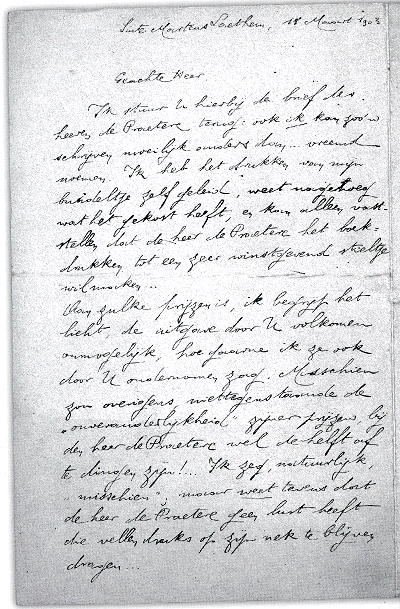 Sinte Martens Laethem, 18 Maart 1903
Geachte Heer
Ik stuur U hierbij de brief des
heeren de Praetere terug: ook ik kan zóó'n
schrijven moeilijk anders dan... vreemd
noemen. Ik heb het drukken van mijn
bundeltje zelf geleid, weet nagenoeg
wat het gekost heeft, en kan alleen vast-
stellen dat de heer de Praetere het boek-
drukken tot een zeer winstgevend
wil maken...
Aan zulke prijzen is, ik begrijp het
licht, de uitgave door U volkomen
onmogelijk, hoe gaarne ik ze ook
door U ondernomen zag. Misschien
zou overigens, niettegenstaande de
"onveranderlijkheid" zijner prijzen, bij
den heer de Praetere wel de helft af
te dingen zijn!... Ik zeg, natuurlijk,
"misschien"; maar weet tevens dat
de heer de Praetere geen lust heeft
die vellen druks op zijn nek te blijven
dragen...